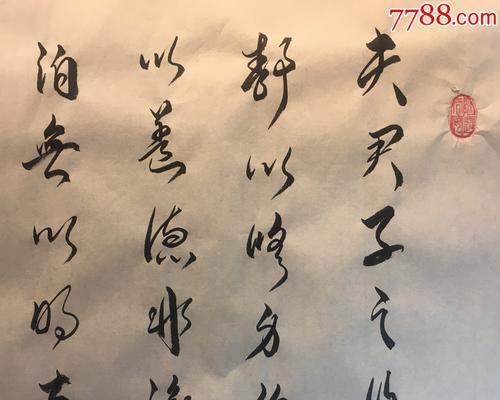 7788.com
夫君子之行
静以修身俭
以养德非淡
泊無以明志